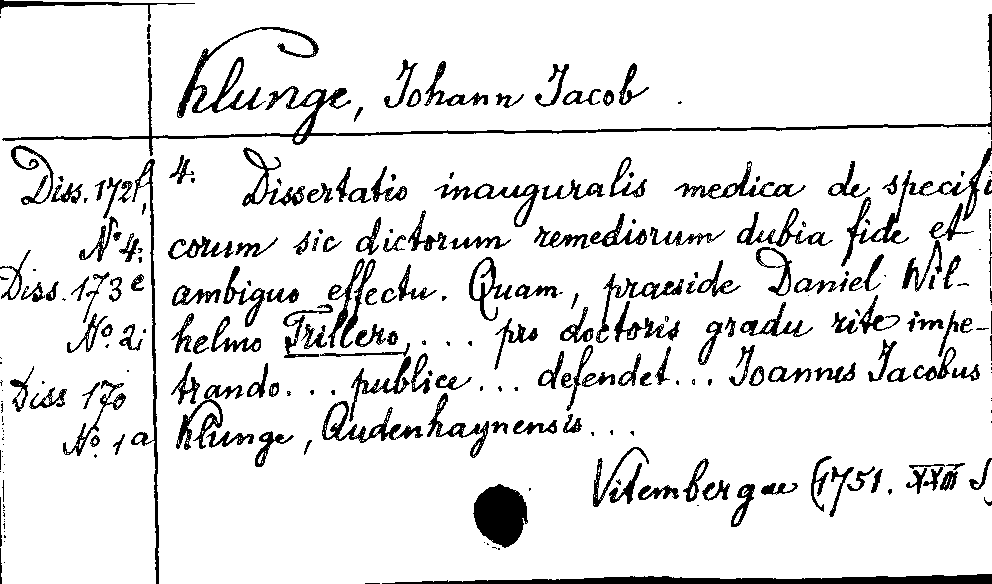 Klunge, Johann Jacob
Diss. 172f,
No 4;
Diss. 173e
No. 2;
Diss 170
No. 1a
4. Dissertatio inauguralis medica de specifi
corum sic dictorum remediorum dubia fide et
ambiguo effectu. Quam, praeside Daniel Wil-
helmo Trillero, ... pro doctoris gradu rite impe-
trando ... publice ... defendet ... Joannes Jacobus
Klunge, Audenhaynensis ...
Vitembergae (1751. XXIII S)